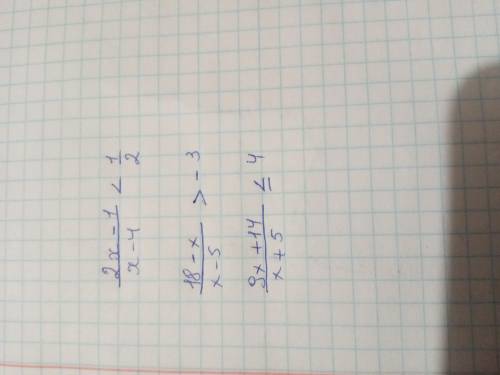 (2x-1)/(x-4) < 1/2
(18-x)/(x-5) > -3
(9x+14)/(x+5) ≤ 4